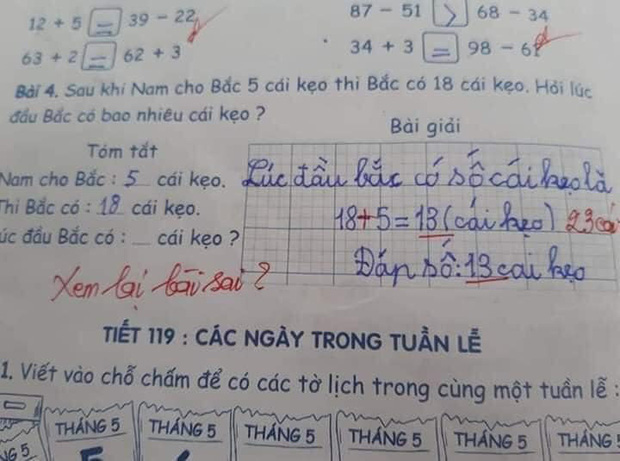 12 + 5 = 39 - 22
87 - 51 > 68 - 34
63 + 2 = 62 + 3
34 + 3 = 98 - 61
Bài 4. Sau khi Nam cho Bắc 5 cái kẹo thì Bắc có 18 cái kẹo. Hỏi lúc
đầu Bắc có bao nhiêu cái kẹo ?
Bài giải
Tóm tắt
Nam cho Bắc : 5 cái kẹo.
Thì Bắc có : 18 cái kẹo.
úc đầu Bắc có : __ cái kẹo ?
Lúc đầu bắc có số cái kẹo là
18+5=13 (cái kẹo) 23 cái
Đáp số: 13 cai kẹo
Xem lại bài sai ?
TIẾT 119 : CÁC NGÀY TRONG TUẦN LỄ
1. Viết vào chỗ chấm để có các tờ lịch trong cùng một tuần lễ :
NG 5 THÁNG 5 THÁNG 5 THÁNG 5 THÁNG 5 THÁNG 5 THÁNG